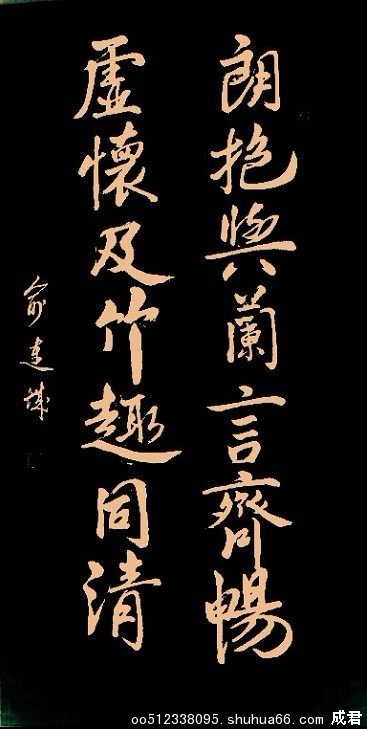 朗抱與蘭言齊暢
虛懷及竹趣同清
俞建誠
oo512338095.shuhua66.com 成君